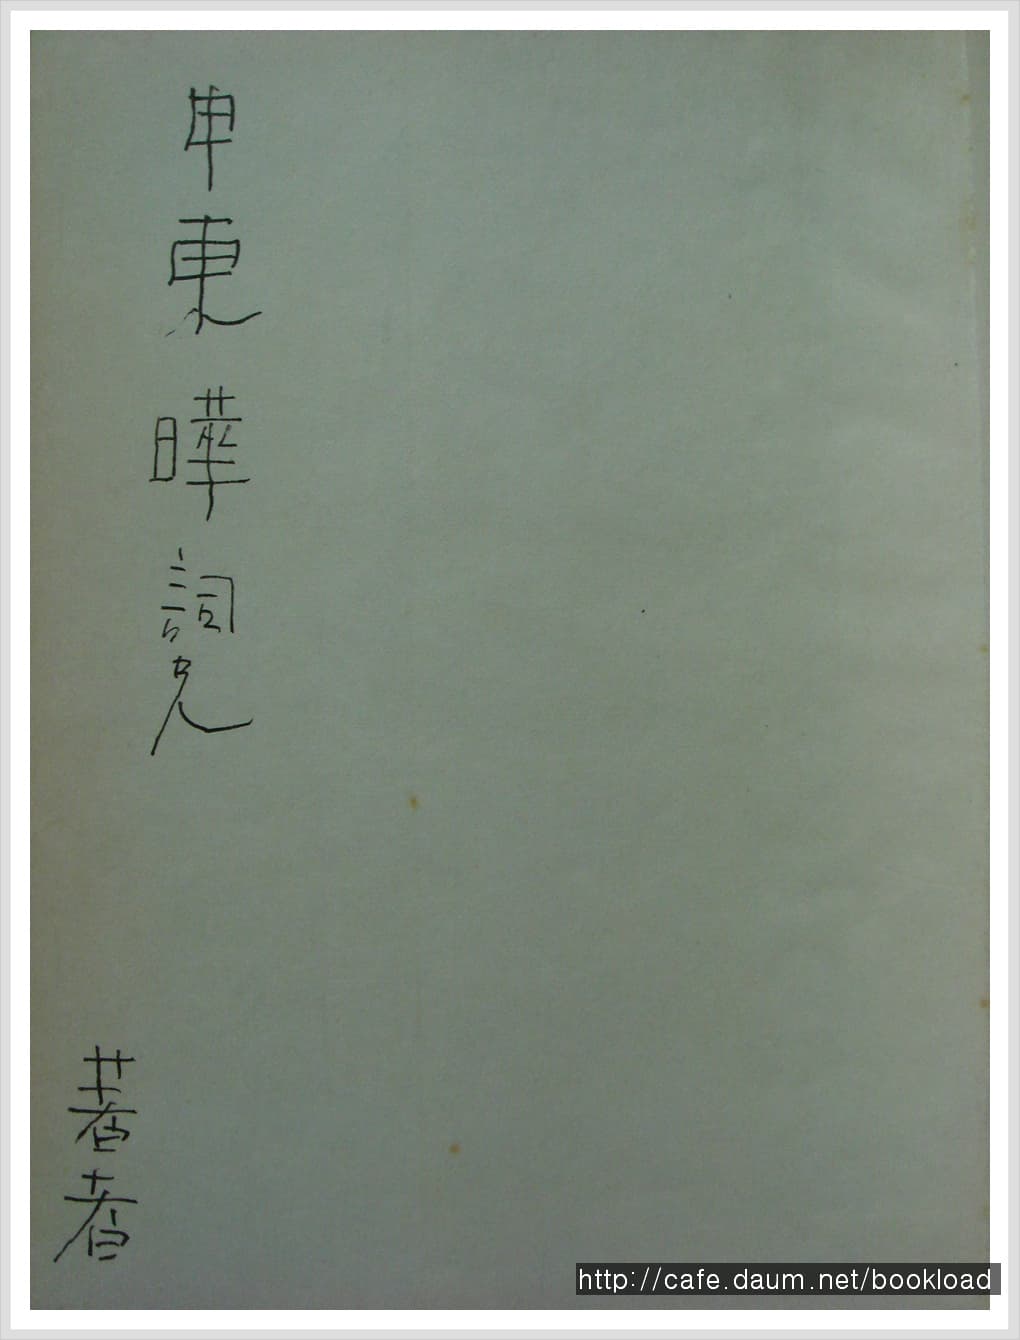 申東曄詞兄
著者
http://cafe.daum.net/bookload